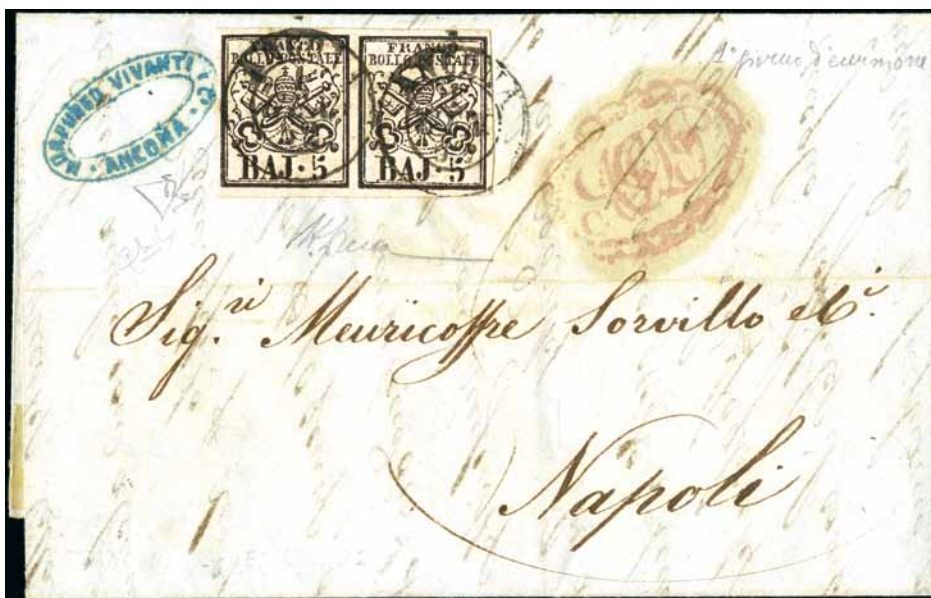 MORPURGO VIVANTI & CO.
· ANCONA ·
FRANCO
BOLLO POSTALE
BAJ · 5
FRANCO
BOLLO POSTALE
BAJ · 5
1° giorno d'emissione
Sig.ri Meuricoffre Sorvillo e C.i
Napoli